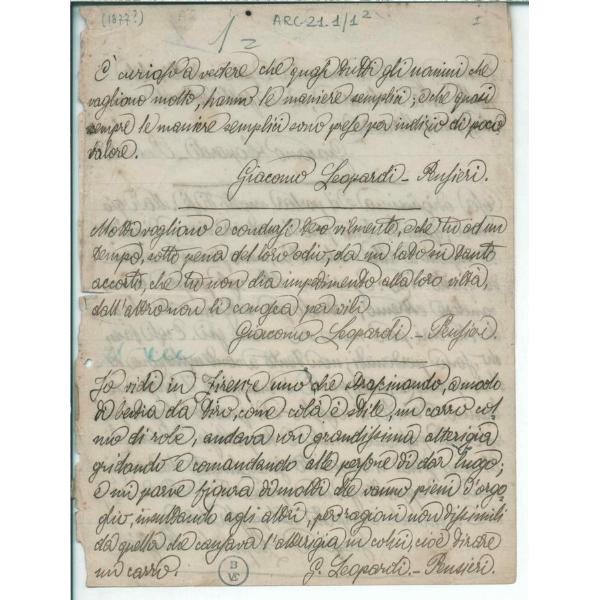 (1877?)
ARC-21.1/1²
I
1
È curioso a vedere che quasi tutti gli uomini che
vagliono molto, hanno le maniere semplici; e che quasi
sempre le maniere semplici sono prese per indizio di poco
valore.
Giacomo Leopardi - Pensieri.
Molti vogliono e condursi teco vilmente, e che tu ad un
tempo, sotto pena del loro odio, da un lato sii tanto
accorto, che tu non dia impedimento alla loro viltà,
dall'altro non li conosca per vili.
Giacomo Leopardi. - Pensieri.
Io vidi in Firenze uno che strascinando, a modo
di bestia da tiro, come colà è stile, un carro col-
mo di robe, andava con grandissima alterigia
gridando e comandando alle persone di dar luogo;
e mi parve figura di molti che vanno pieni d'orgo-
glio, insultando agli altri, per ragioni non dissimili
da quella che causava l'alterigia in colui, cioè tirare
un carro.
G. Leopardi. - Pensieri.
B
VE